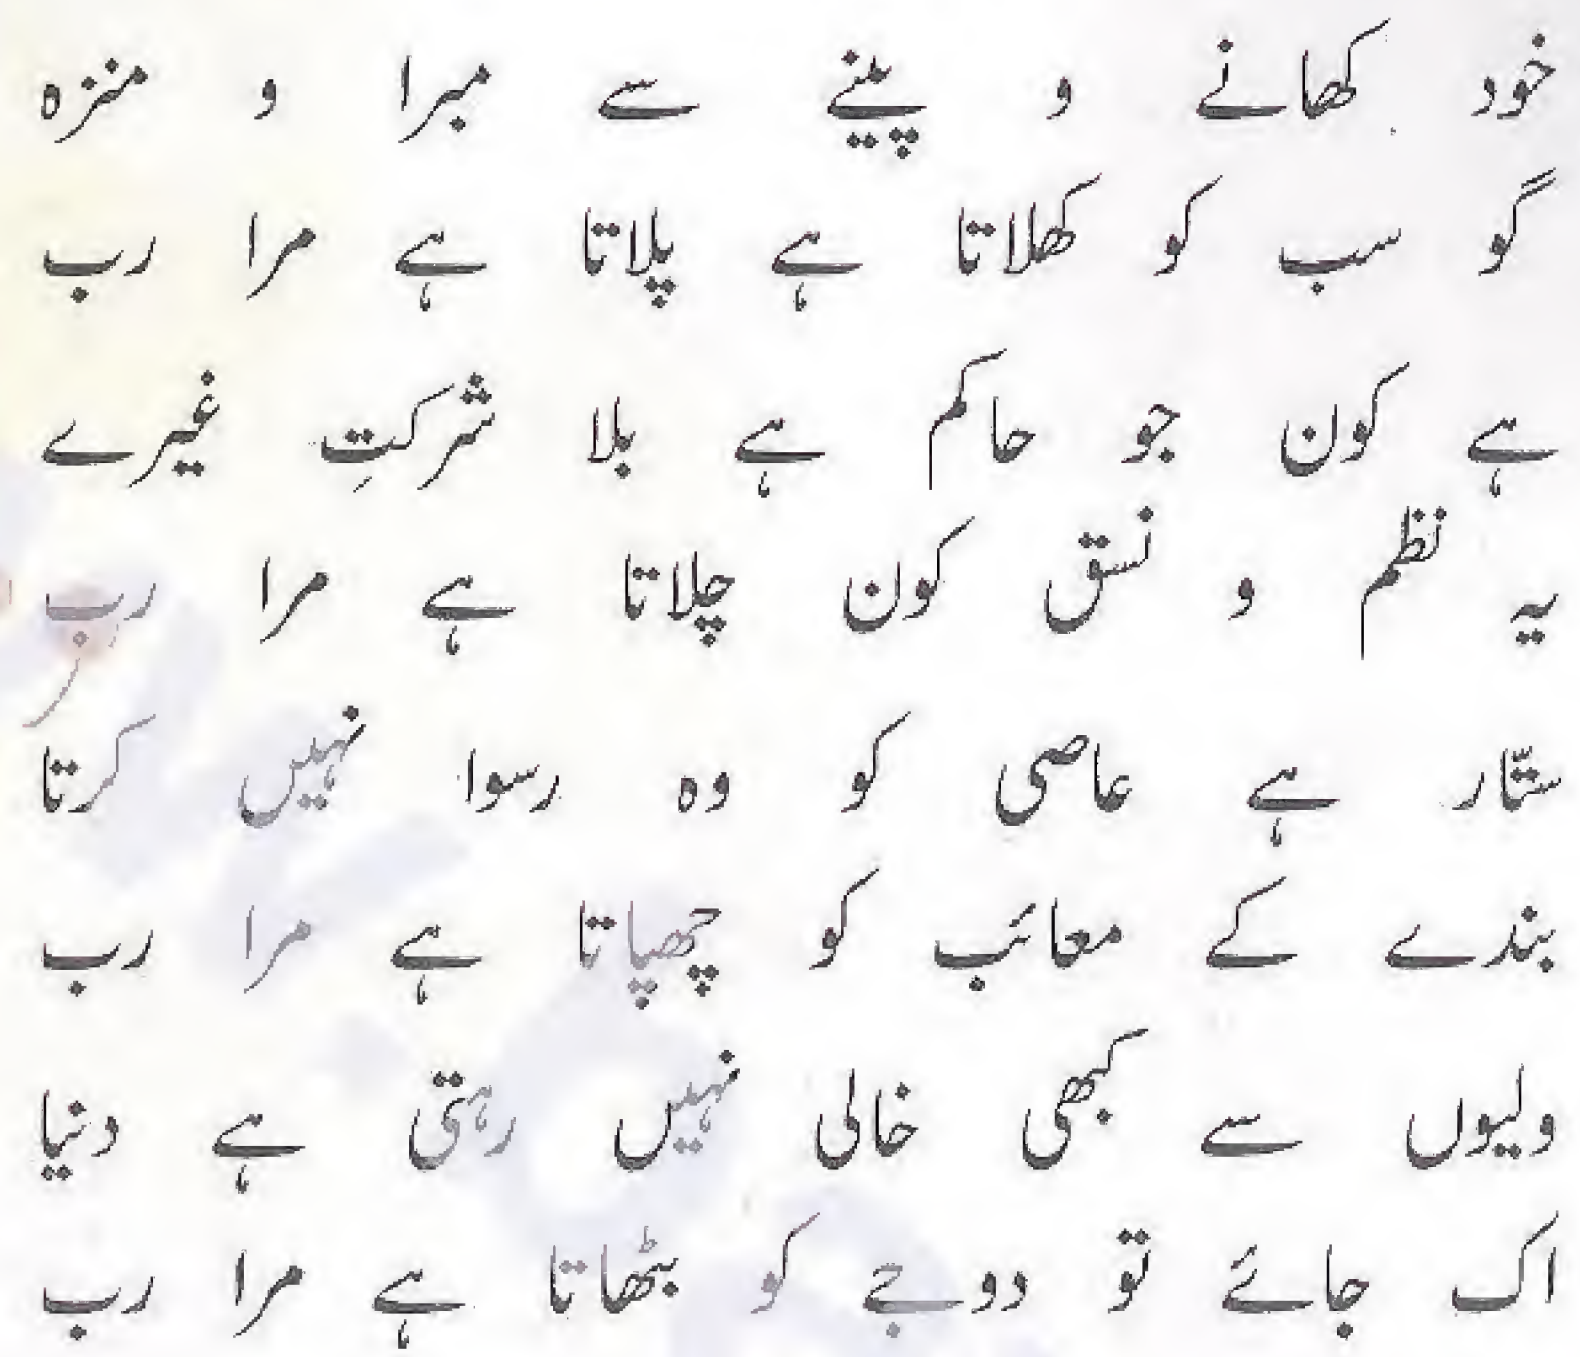 خود کھانے و پینے سے مبرا و منزہ
گو سب کو کھلاتا ہے پلاتا ہے مرا رب
ہے کون جو حاکم ہے بلا شرکتِ غیرے
یہ نظم و نسق کون چلاتا ہے مرا رب
ستّار ہے عاصی کو وہ رسوا نہیں کرتا
بندے کے معائب کو چھپاتا ہے مرا رب
ولیوں سے کبھی خالی نہیں رہتی ہے دنیا
اک جائے تو دوجے کو بٹھاتا ہے مرا رب